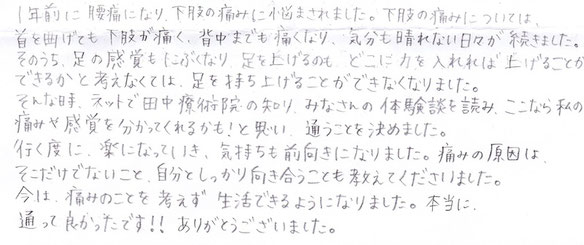 1年前に腰痛になり、下肢の痛みに悩まされました。下肢の痛みについては、
首を曲げても下肢が痛く、背中までも痛くなり、気分も晴れない日々が続きました。
そのうち、足の感覚もにぶくなり、足を上げるのも、どこに力を入れれば上げることが
できるかと考えなくては、足を持ち上げることができなくなりました。
そんな時、ネットで田中療術院の知り、みなさんの体験談を読み、ここなら私の
痛みや感覚を分かってくれるかも!と思い、通うことを決めました。
行く度に、楽になっていき、気持ちも前向きになりました。痛みの原因は、
そこだけでないこと、自分としっかり向き合うことも教えてくださいました。
今は、痛みのことを考えず生活できるようになりました。本当に、
通って良かったです!!ありがとうございました。